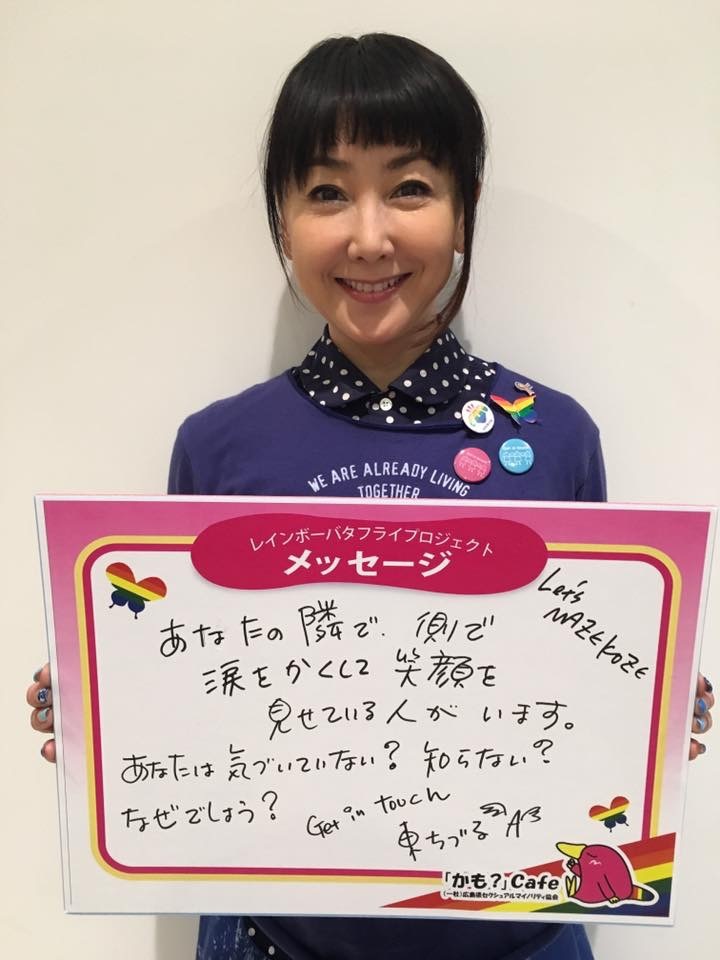 WE ARE ALREADY LIVING
TOGETHER
レインボーバタフライプロジェクト
メッセージ
Let's
MAZEKOZE
あなたの隣で、側で
涙をかくして笑顔を
見せている人がいます。
あなたは気づいていない？知らない？
なぜでしょう？
Get in touch
東ちづる
「かも？」Cafe
(一社)広島県セクシュアルマイノリティ協会